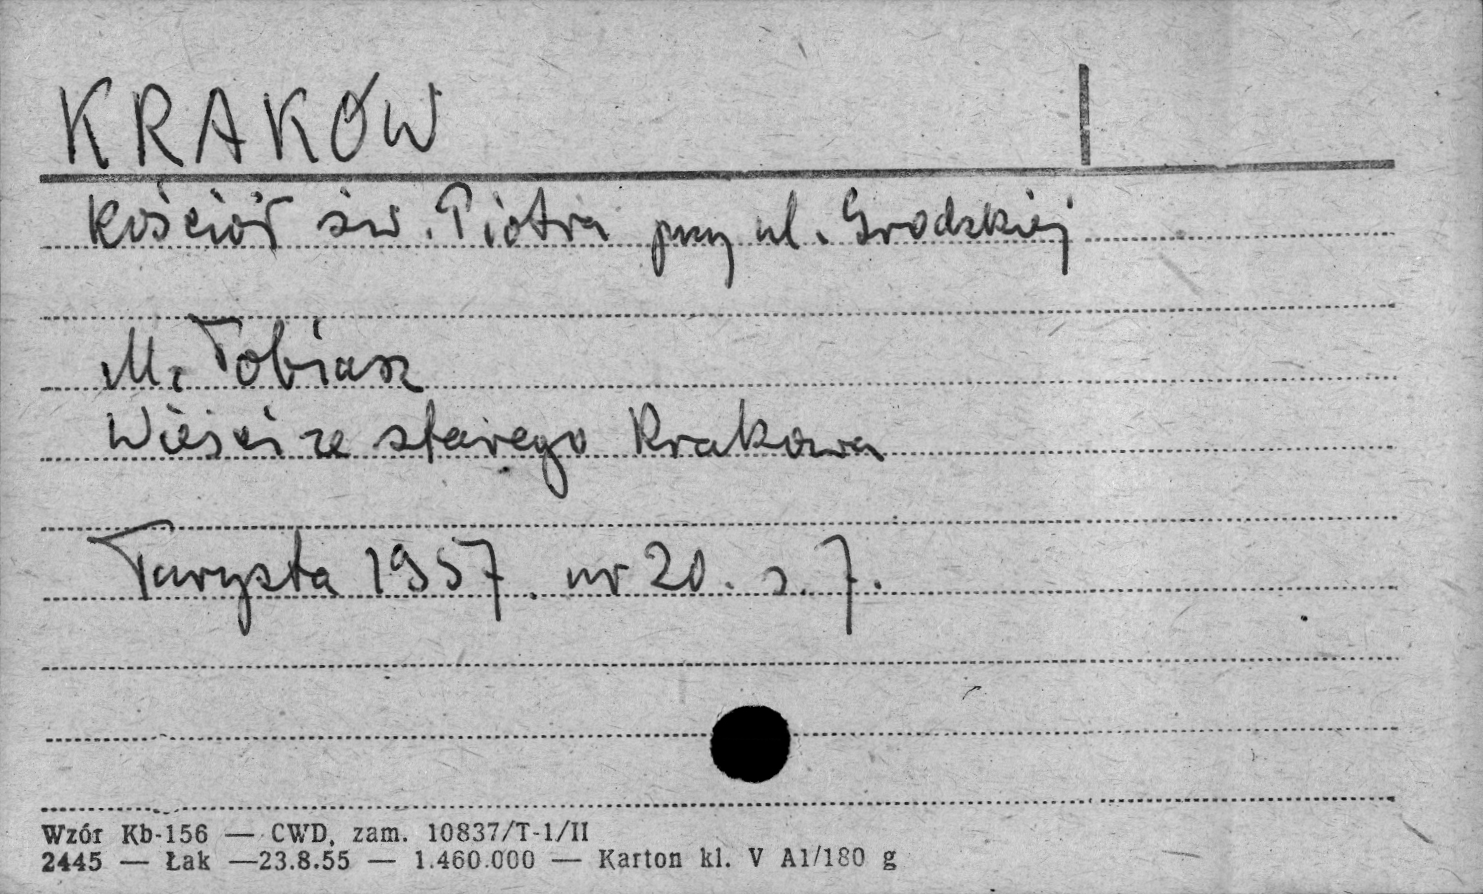 KRAKÓW
Kościół św. Piotra przy ul. Grodzkiej
M. Tobiasz
Wieści ze starego Krakowa
Turysta 1957. nr 20. s. 7.
Wzór Kb-156 — CWD, zam. 10837/T-1/II
2445 — Łak —23.8.55 — 1.460.000 — Karton kl. V A1/180 g